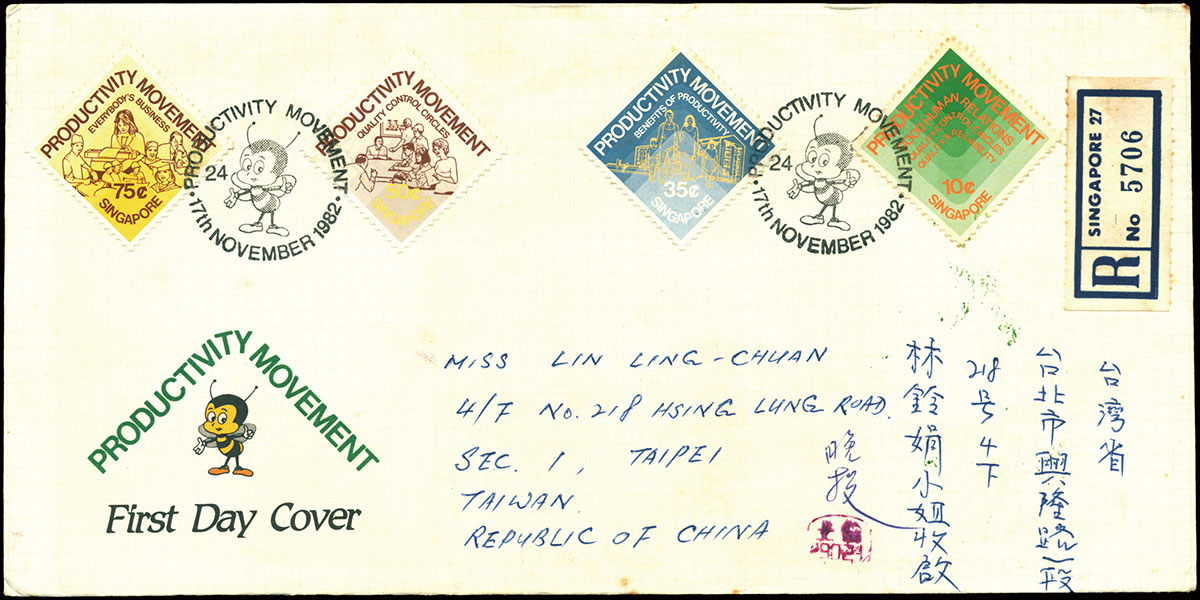 PRODUCTIVITY MOVEMENT
EVERYBODY'S BUSINESS
75¢
SINGAPORE
PRODUCTIVITY MOVEMENT
24
17th NOVEMBER 1982
PRODUCTIVITY MOVEMENT
QUALITY CONTROL CIRCLES
50¢
SINGAPORE
PRODUCTIVITY MOVEMENT
BENEFITS OF PRODUCTIVITY
35¢
SINGAPORE
PRODUCTIVITY MOVEMENT
24
17th NOVEMBER 1982
PRODUCTIVITY MOVEMENT
GOOD HUMAN RELATIONS
QUALITY CONTROL CIRCLES
QUALITY RELIABILITY
10¢
SINGAPORE
R
SINGAPORE 27
No 5706
PRODUCTIVITY MOVEMENT
First Day Cover
MISS LIN LING-CHUAN
4/F No. 218 HSING LUNG ROAD.
SEC. 1, TAIPEI
TAIWAN.
REPUBLIC OF CHINA
台湾省
台北市興隆路一段
218号4下
林鈴娟小姐收啟
晚投